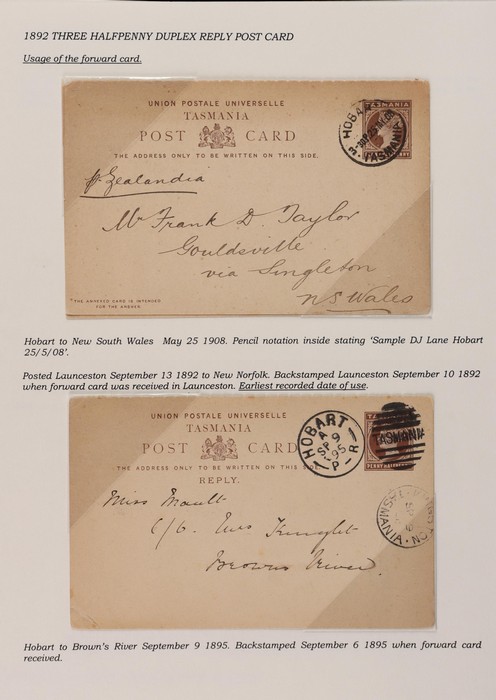 1892 THREE HALFPENNY DUPLEX REPLY POST CARD
Usage of the forward card.
UNION POSTALE UNIVERSELLE
TASMANIA
POST CARD
THE ADDRESS ONLY TO BE WRITTEN ON THIS SIDE.
TASMANIA
HOBA
TASMANIA
pr Zealandia
Mr Frank D. Taylor
Gouldsville
via Singleton
NS Wales
*THE ANNEXED CARD IS INTENDED
FOR THE ANSWER.
Hobart to New South Wales May 25 1908. Pencil notation inside stating 'Sample DJ Lane Hobart
25/5/08'.
Posted Launceston September 13 1892 to New Norfolk. Backstamped Launceston September 10 1892
when forward card was received in Launceston. Earliest recorded date of use.
UNION POSTALE UNIVERSELLE
TASMANIA
POST CARD
THE ADDRESS ONLY TO BE WRITTEN ON THIS SIDE.
REPLY.
HOBART
A
SP 9
95
P R
TASMANIA
PENNY HALF
TASMANIA
Miss Moult
c/o Mrs Knight
Browns River
Hobart to Brown's River September 9 1895. Backstamped September 6 1895 when forward card
received.